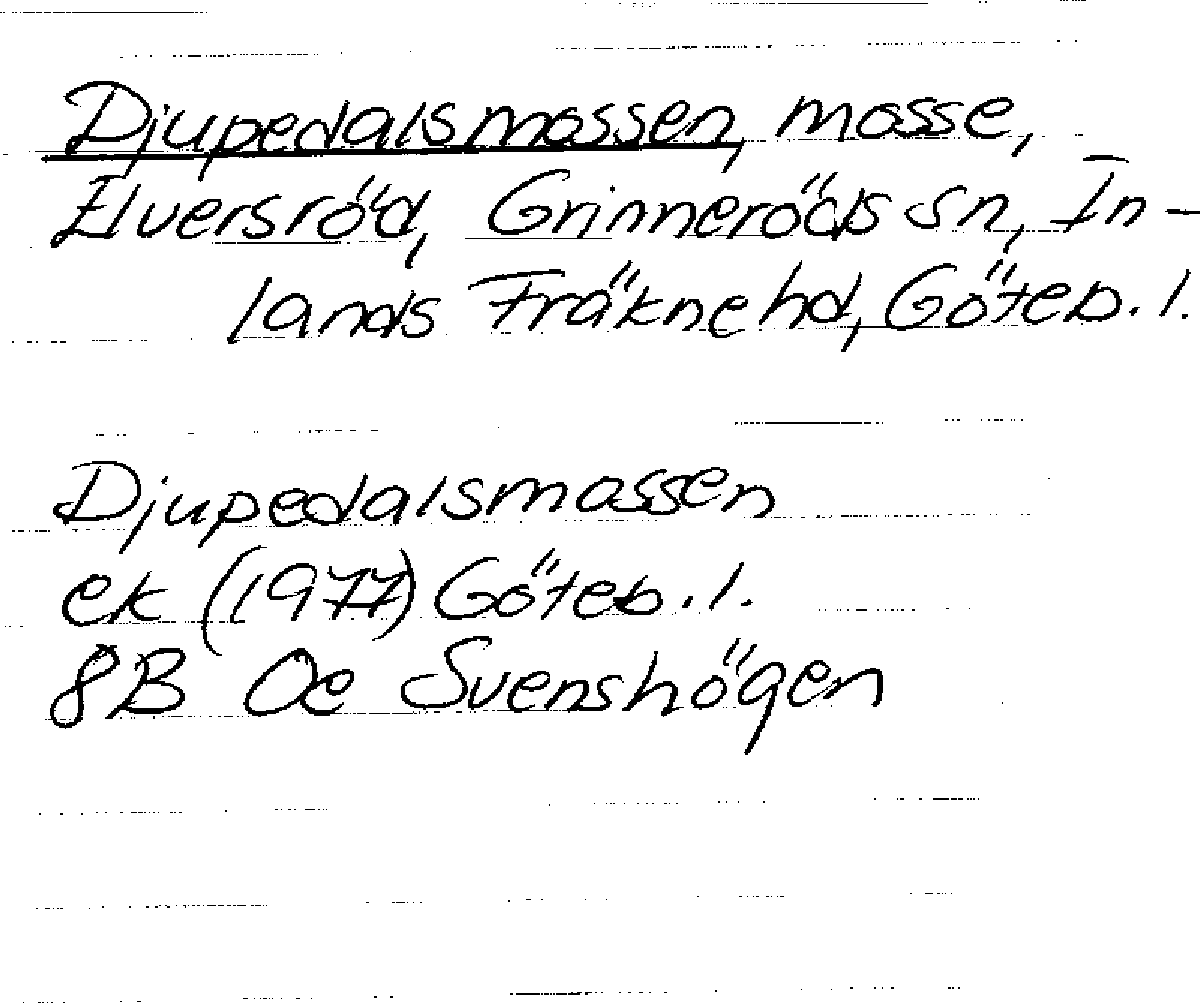 Djupedalsmossen, mosse,
Elversröd, Grinneröds sn, In-
lands Fräkne hd, Göteb. l.
Djupedalsmossen
ek (1977) Göteb. l.
8B Oe Svenshögen